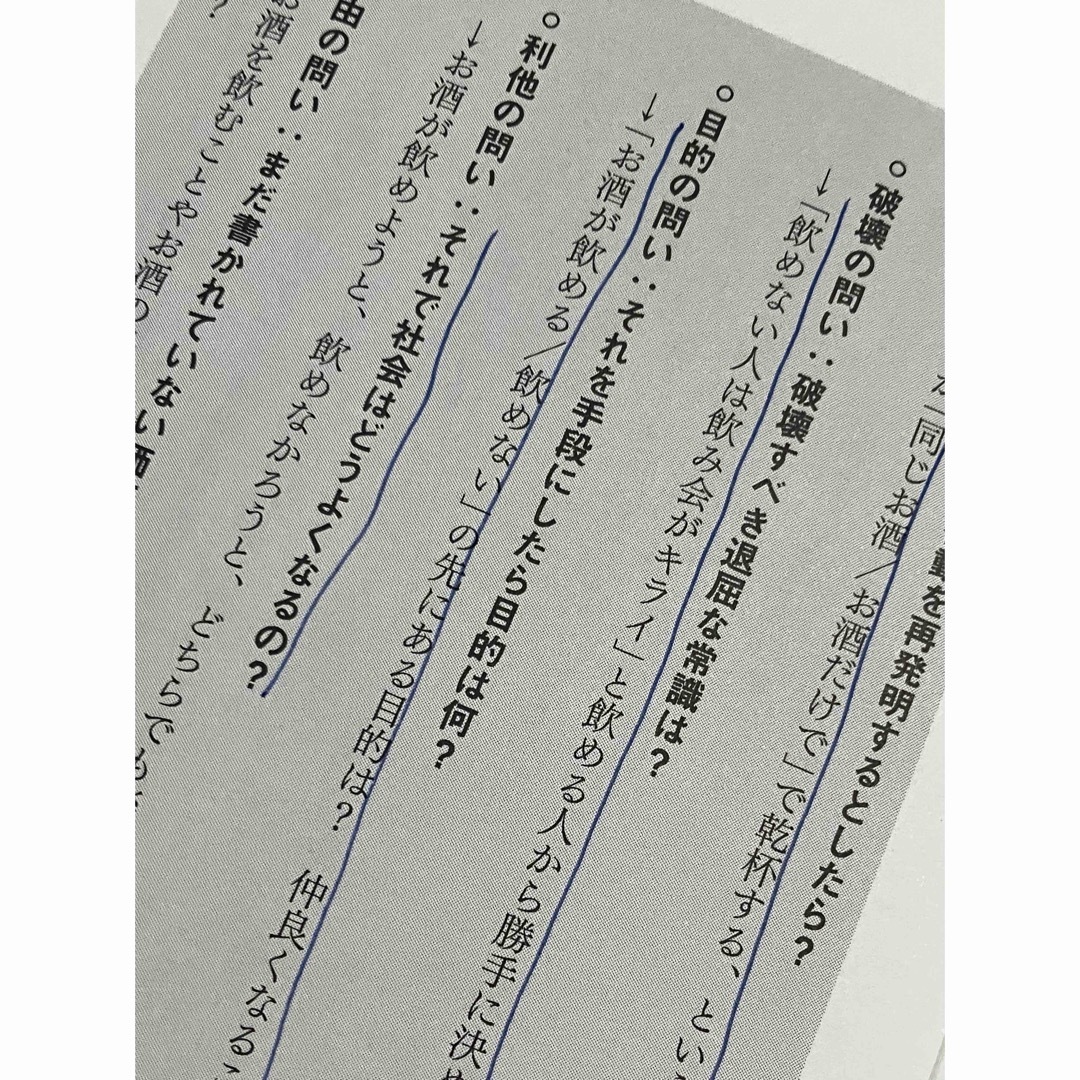 動を再発明するとしたら?
「同じお酒/お酒だけで」で乾杯する、とい
○破壊の問い:破壊すべき退屈な常識は?
→「飲めない人は飲み会がキライ」と飲める人から勝手に決め
○目的の問い:それを手段にしたら目的は何?
→「お酒が飲める/飲めない」の先にある目的は? 仲良くなるこ
○利他の問い:それで社会はどうよくなるの?
→お酒が飲めようと、飲めなかろうと、どちらであ
由の問い:まだ書かれていない
お酒を飲むことやお酒の
?